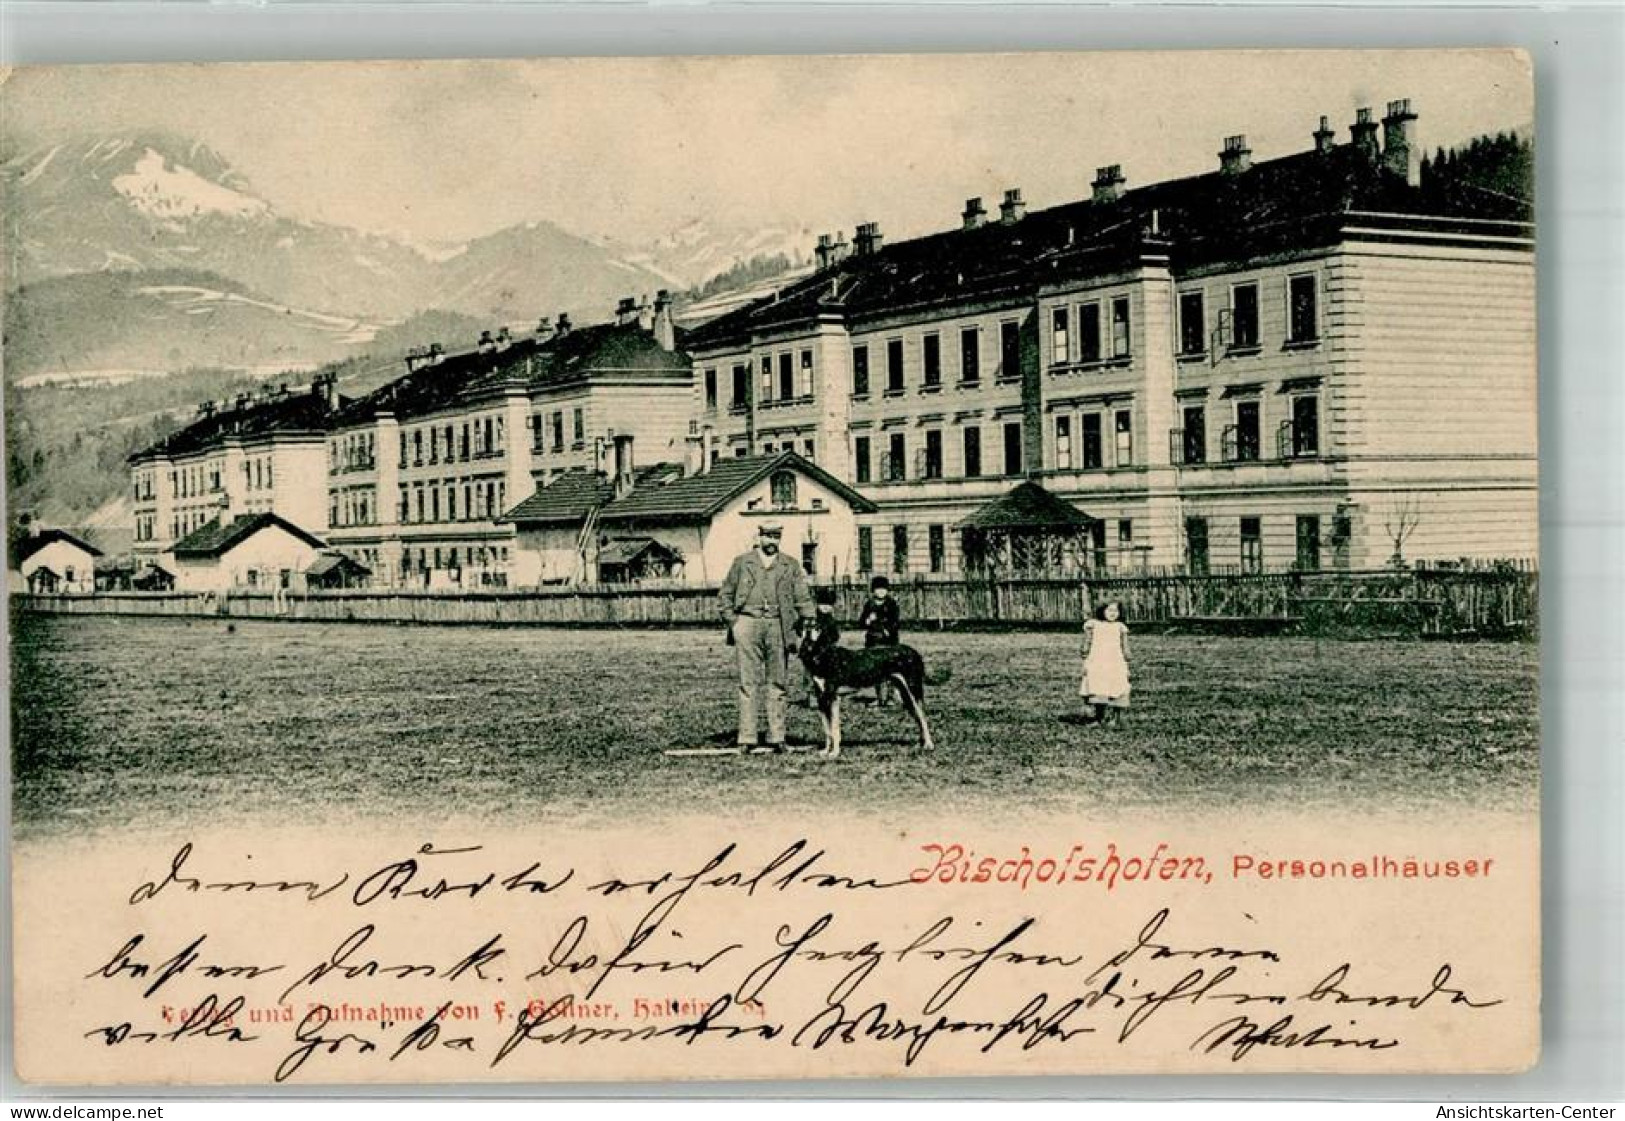 Bischofshofen, Personalhäuser
deine Karte erhalten
besten Dank. dafür herzlichen deine
dichliebende
Verlag und Aufnahme von F. Göllner, Hallein 84
ville Grüße
delcampe.net
Ansichtskarten-Center